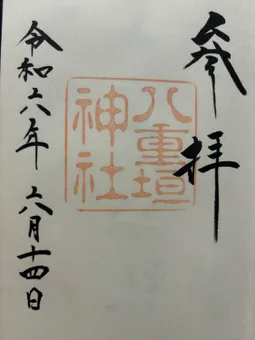 奉拝
八重垣
神社
令和六年 六月十四日